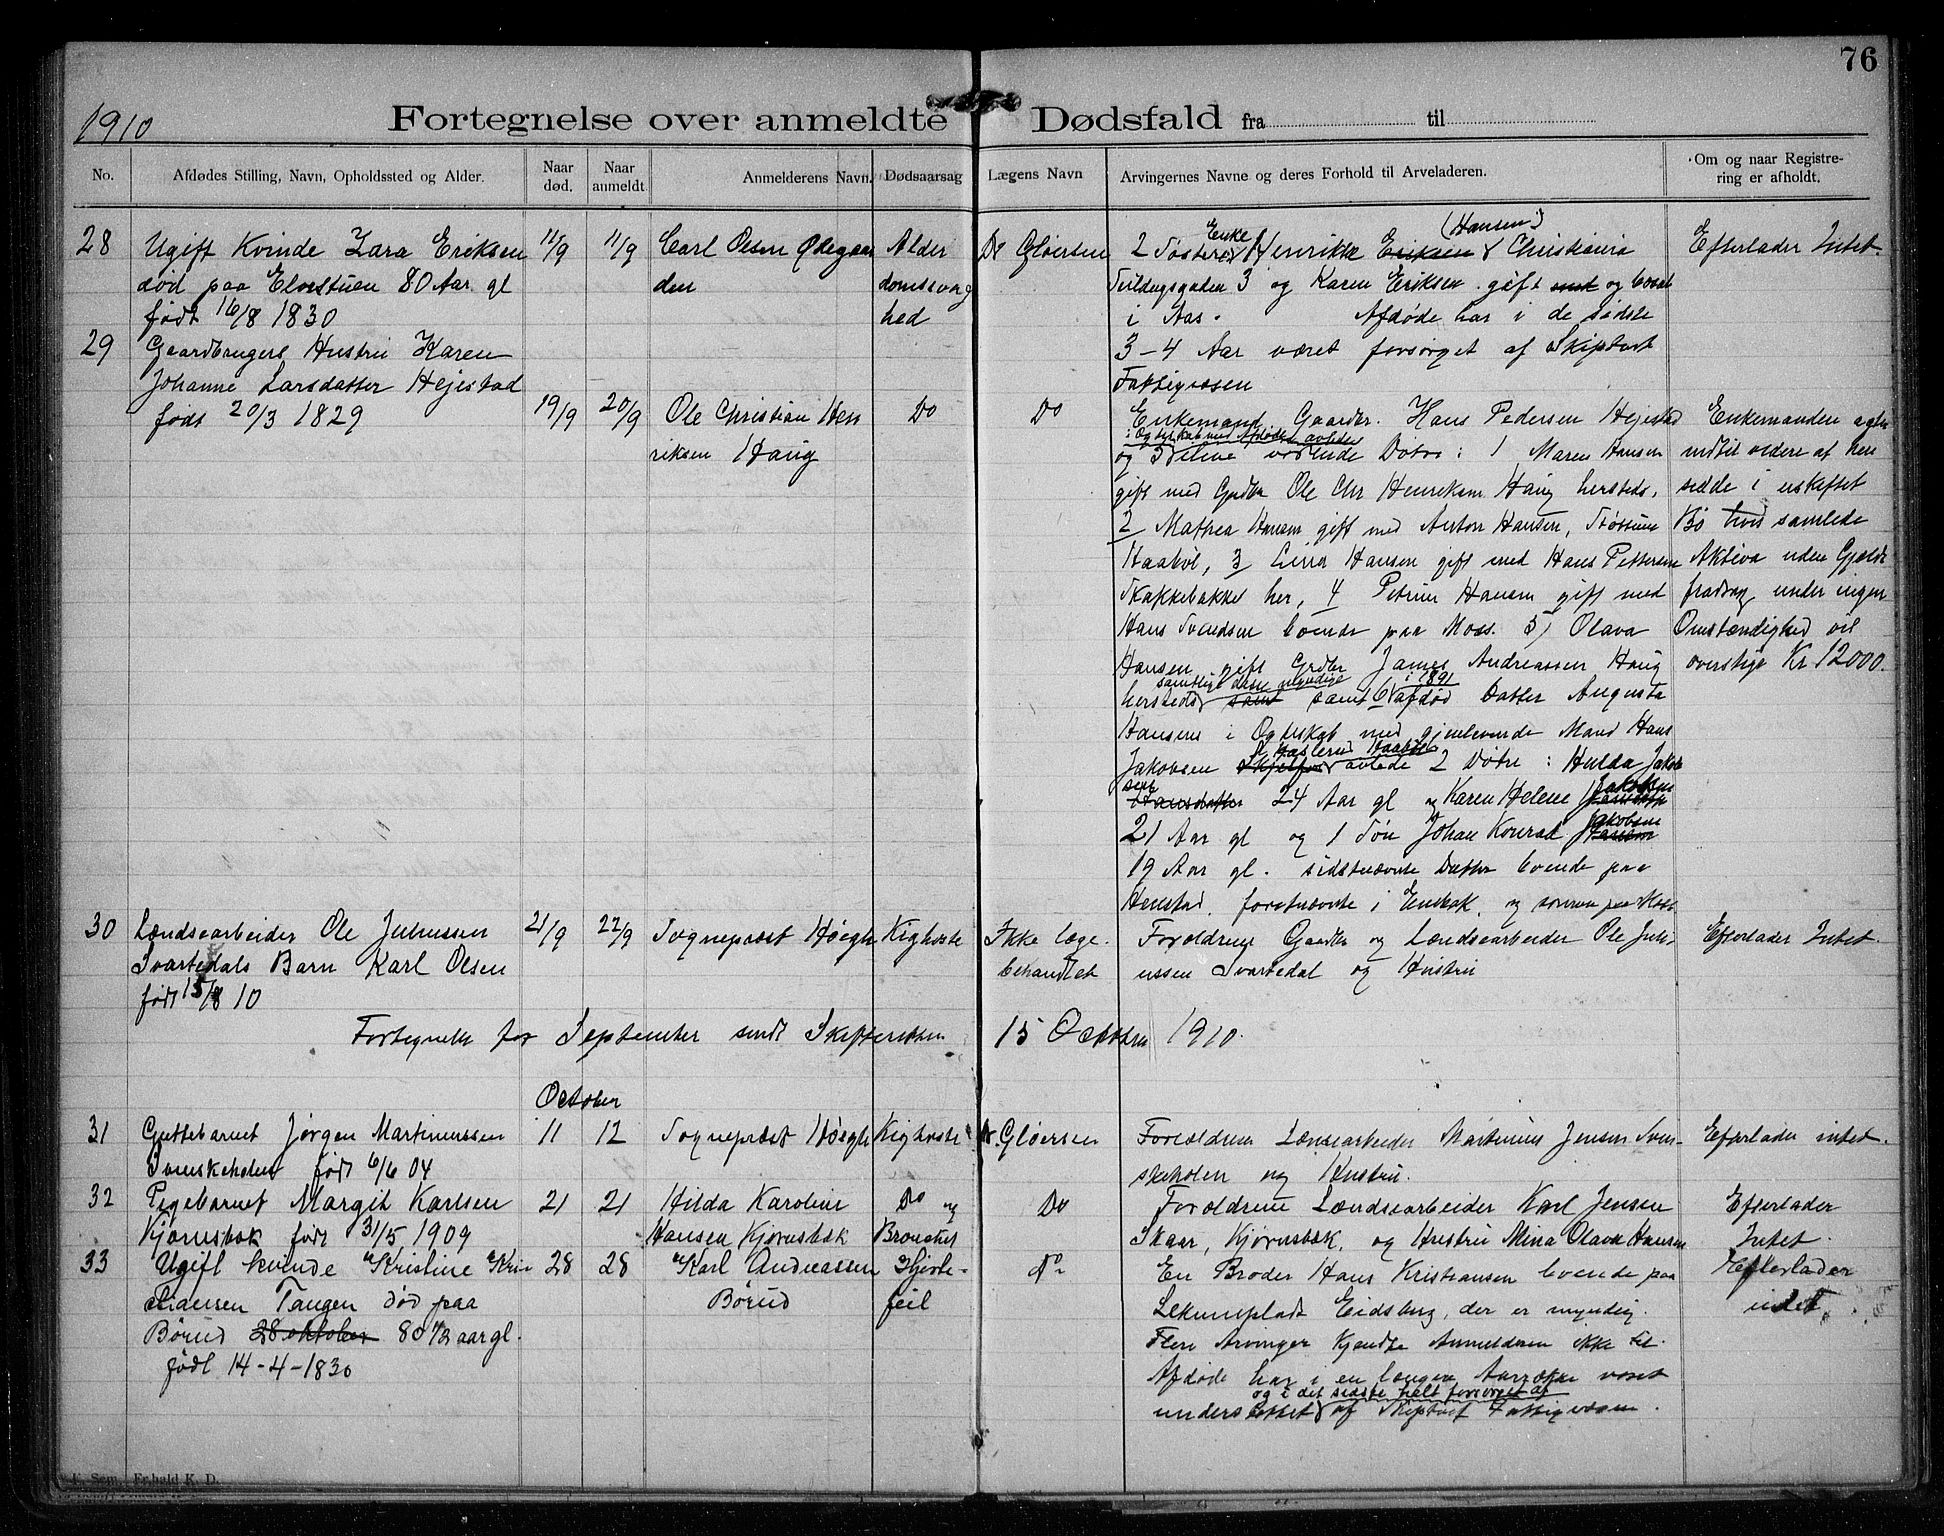 76
1910
Fortegnelse over anmeldte Dødsfald fra til
No.
Afdødes Stilling, Navn, Opholdssted og Alder.
Naar død.
Naar anmeldt.
Anmelderens Navn.
Dødsaarsag
Lægens Navn
Arvingernes Navne og deres Forhold til Arveladeren.
Om og naar Registrering er afholdt.
28
Ugift Kvinde Lara Eriksen
død paa Elvestuen 80 Aar gl
født 16/8 1830
11/9
11/9
Carl Olsen Ødegaar
den
Alder
domssvag
hed
Dr Gløersen
Enke (Hansen)
2 Søstere Henrikke Eriksen Christiania
3 og Karen Eriksen gift med og bosat
i Aas. Afdøde har i de sidste
3-4 Aar været forsørget af Skiptvet
Fattigvæsen
Efterlader Intet.
29
Gaardbrugers Hustru Karen
Johanne Larsdatter Hejestad
født 20/3 1829
19/9
20/9
Ole Christian Hen
riksen Haug
Do
Do
Enkemand Gaardbr. Hans Pedersen Hejestad
i Ægteskab med Afdøde avlede
og 5 i live værende Døtre: 1 Maren Hansen
gift med Grdbr Ole Chr Henriksen Haug hersteds,
2 Mathea Hansen gift med Anton Hansen,
Haabøl, 3 Lina Hansen gift med Hans Pettersen
Skakkebakke her, 4 Petrine Hansen gift med
Hans Svendsen boende paa Moss. 5) Olava
Hansen gift Grdbr James Andreassen Haug
samtlige disse myndige i 1891
hersteds samt samt 6 afdød Datter Augusta
Hansens i Ægteskab med gjenlevende Mand Hans
Haabøl
Jakobsen avlede 2 Døtre: Hulda Jakob
sen
Hansdatter 24 Aar gl og Karen Helene Jakobsen
21 Aar gl og 1 Søn Johan Konrad Jakobsen
19 Aar gl. sidstnævnte Datter boende paa
Henstad, førstnævnte i Enebak, og sønnen paa Moss
Enkemanden agter
indtil videre at hen
sidde i uskiftet
Bo hvis samlede
Aktiva uden Gjælds
fradrag under ingen
Omstændighed vil
overstige Kr 12000.
30
Lændsearbeider Ole Juliussen
Svartedals Barn Karl Olsen
født 15/8 10
21/9
22/9
Sogneprest Høegh
Kighoste
Ikke læge
behandlet
Forældrene Gaardbr og Lændsearbeider Ole Juli-
ussen Svartedal og Hustru
Efterlader Intet.
Fortegnelse for September sendt Skifteretten 15 October 1910.
October
31
Guttebarnet Jørgen Martinussen
Svenskeholen født 6/6 04
11
12
Sogneprest Høegh
Kighoste
Dr. Gløersen
Forældrene Lænsearbeider Martinius Jensen Sven-
skeholen og Hustru.
Efterlader intet.
32
Pigebarnet Margit Karlsen
Kjørnsbøk født 31/5 1909
21
21
Hilda Karoline
Hansen Kjørnsbøk
Do og
Bronchit
Do
Forældrene Lændsearbeider Karl Jensen
Skaar, Kjørnsbøk, og Hustru Mina Olava Hansen
Efterlader
Intet.
33
Ugift kvinde Kristine Kri
stiansen Tangen død paa
Børud 28 oktober 80 1/2 aar gl.
født 14-4-1830
28
28
Karl Andreassen
Børud
Hjerte-
feil
Do
En Broder Hans Kristiansen boende paa
Lekumplads Eidsberg, der er myndig.
Flere Arvinger kjendte Anmelderen ikke til.
Afdøde har i en længere Aarrække været
og i det sidste helt forsørget af
understøttet af Skiptvet Fattigvæsen.
Efterlader
intet.
F. Sem, Fr.hald K. D.